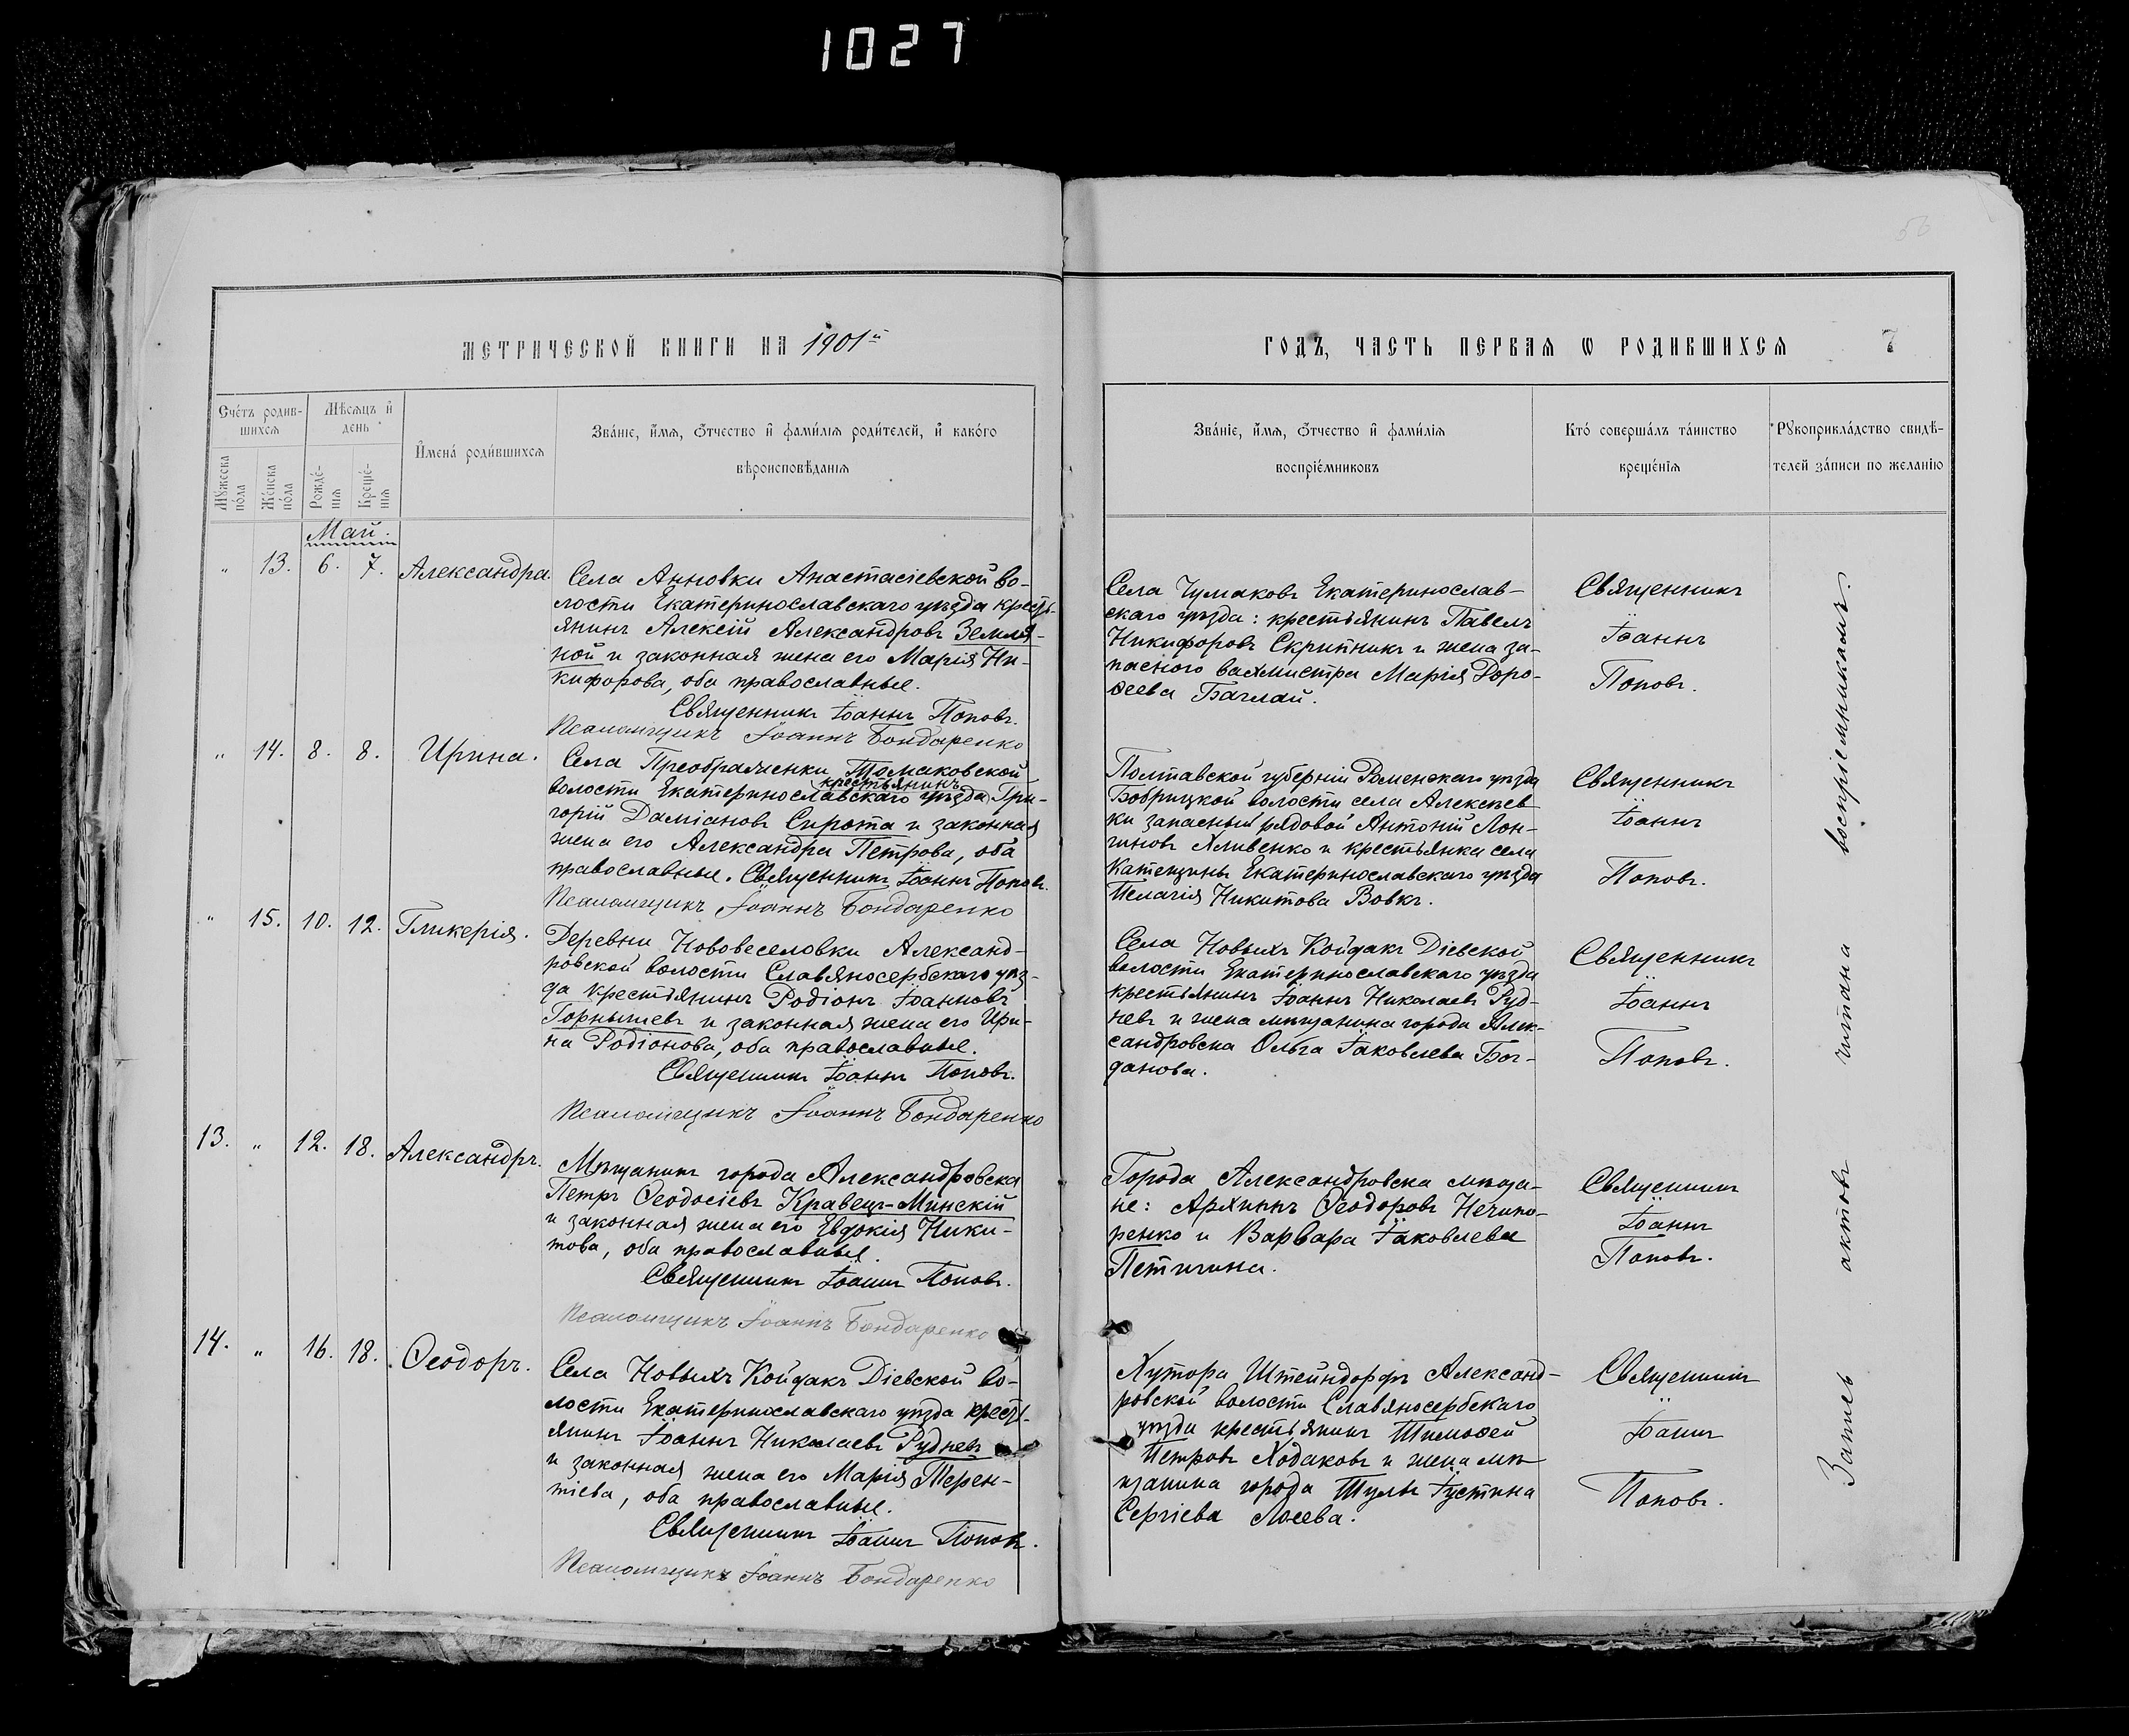 1027
56
МЕТРИЧЕСКОЙ КНИГИ НА 1901й
ГОДЪ, ЧАСТЬ ПЕРВАЯ Ѡ РОДИВШИХСЯ 7
Сче́тъ родив-
шихсѧ
Мѣсѧцъ и҆
де́нь
Мꙋ́жеска по́ла
Же́нска по́ла
Рожде́-
нїѧ
Креще́-
нїѧ
И҆мена̀ роди́вшихсѧ
Зва́нїе, и҆́мѧ, ѻ҆́тчество и҆ фами́лїѧ роди́телей, и҆ како́гѡ
вѣроисповѣ́данїѧ
Зва́нїе, и҆́мѧ, ѻ҆́тчество и҆ фами́лїѧ
воспрїе́мниковъ
Кто̀ соверша́лъ та́инство
креще́нїѧ
Рꙋкоприкла́дство свидѣ́-
телей за́писи по жела́нїю
Май.
" 13. 6. 7. Александра.
Села Анновки Анастасіевской во-
лости Екатеринославскаго уѣзда кресть-
янинъ Алексій Александровъ Земля-
ной и законная жена его Марія Ни-
кифорова, оба православные.
Священникъ Іоаннъ Поповъ.
Псаломщикъ Іоаннъ Бондаренко
Села Чумаковъ Екатеринослав-
скаго уѣзда: крестьянинъ Павелъ
Никифоровъ Скрипникъ и жена за-
пасного вахмистра Марія Доро-
ѳеева Баглай.
Священникъ
Іоаннъ
Поповъ.
" 14. 8. 8. Ирина.
Села Преображенки Томаковской
крестьянинъ
волости Екатеринославскаго уѣзда Гри-
горій Даміановъ Сирота и законная
жена его Александра Петрова, оба
православные. Священникъ Іоаннъ Поповъ.
Псаломщикъ Іоаннъ Бондаренко
Полтавской губерніи Роменскаго уѣзда
Бобрицкой волости села Алексѣев
ки запасный рядовой Антоній Лон-
гиновъ Хливенко и крестьянка села
Катещины Екатеринославскаго уѣзда
Пелагія Никитова Вовкъ.
Священникъ
Іоаннъ
Поповъ.
" 15. 10. 12. Гликерія.
Деревни Нововеселовки Александ-
ровской волости Славяносербскаго уѣз-
да крестьянинъ Родіонъ Іоанновъ
Горнышевъ и законная жена его Ири-
на Родіонова, оба православные.
Священникъ Іоаннъ Поповъ.
Псаломщикъ Іоаннъ Бондаренко
Села Новыхъ Койдакъ Діевской
волости Екатеринославскаго уѣзда
крестьянинъ Іоаннъ Николаевъ Руд-
невъ и жена мѣщанина города Алек-
сандровска Ольга Іаковлева Бог-
данова.
Священникъ
Іоаннъ
Поповъ.
13. " 12. 18. Александръ.
Мѣщанинъ города Александровска
Петръ Ѳеодосіевъ Кравецъ-Минскій
и законная жена его Евдокія Ники-
това, оба православные.
Священникъ Іоаннъ Поповъ.
Псаломщикъ Іоаннъ Бондаренко
Города Александровска мѣща-
не: Архиппъ Ѳеодоровъ Нечипо-
ренко и Варвара Іаковлева
Петигина.
Священникъ
Іоаннъ
Поповъ.
14. " 16. 18. Ѳеодоръ.
Села Новыхъ Койдакъ Діевской во-
лости Екатеринославскаго уѣзда кресть-
янинъ Іоаннъ Николаевъ Рудневъ
и законная жена его Марія Терен-
тіева, оба православные.
Священникъ Іоаннъ Поповъ.
Псаломщикъ Іоаннъ Бондаренко
Хутора Штейндорфъ Александ-
ровской волости Славяносербскаго
уѣзда крестьянинъ Тимоѳей
Петровъ Ходаковъ и жена мѣ-
щанина города Тулы Іустина
Сергіева Лосева.
Священникъ
Іоаннъ
Поповъ.
Запись актовъ читана воспріемникамъ.